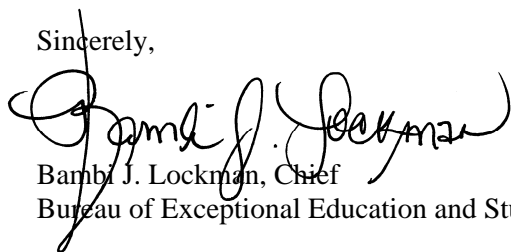 Sincerely,
Bambi J. Lockman
Bambi J. Lockman, Chief
Bureau of Exceptional Education and Stu